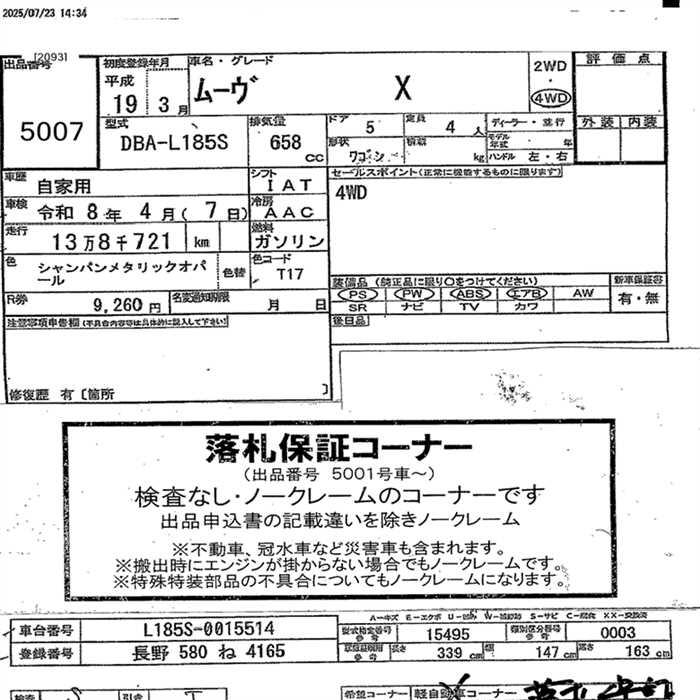 2025/07/23 14:34
[2093]
出品番号 初度登録年月 車名・グレード 評価点
平成 19 3月 ムーヴ X 2WD・4WD
5007
型式 DBA-L185S 排気量 658 cc ドア 5 定員 4人 ディーラー・並行 外装 内装
形状 ワゴン 積載 kg モデル年式 年 ハンドル 左・右
車歴 自家用 シフト IAT セールスポイント(正常に機能するものに限ります)
車検 令和 8年 4月( 7日) 冷房 AAC 4WD
走行 13万8千721 km 燃料 ガソリン
色 シャンパンメタリックオパール 色替 色コード T17
装備品 (純正品に限り○をつけてください) 新車保証書
PS PW ABS エアB AW 有・無
SR ナビ TV カワ
R券 9,260円 名変通知期限 月 日
後日品
注意事項申告欄(不具合内容等は具体的に記入して下さい!)
修復歴 有〔箇所 〕
落札保証コーナー
(出品番号 5001号車〜)
検査なし・ノークレームのコーナーです
出品申込書の記載違いを除きノークレーム
※不動車、冠水車など災害車も含まれます。
※搬出時にエンジンが掛からない場合でもノークレームです。
※特殊特装部品の不具合についてもノークレームになります。
A-キズ E-エクボ S-サビ C-腐食 XX-交換済
車台番号 L185S-0015514 型式指定番号 参考 15495 類別区分番号 参考 0003
登録番号 長野 580 ね 4165 長さ 339 cm 幅 147 cm 高さ 163 cm
希望コーナー 軽自動車コーナー